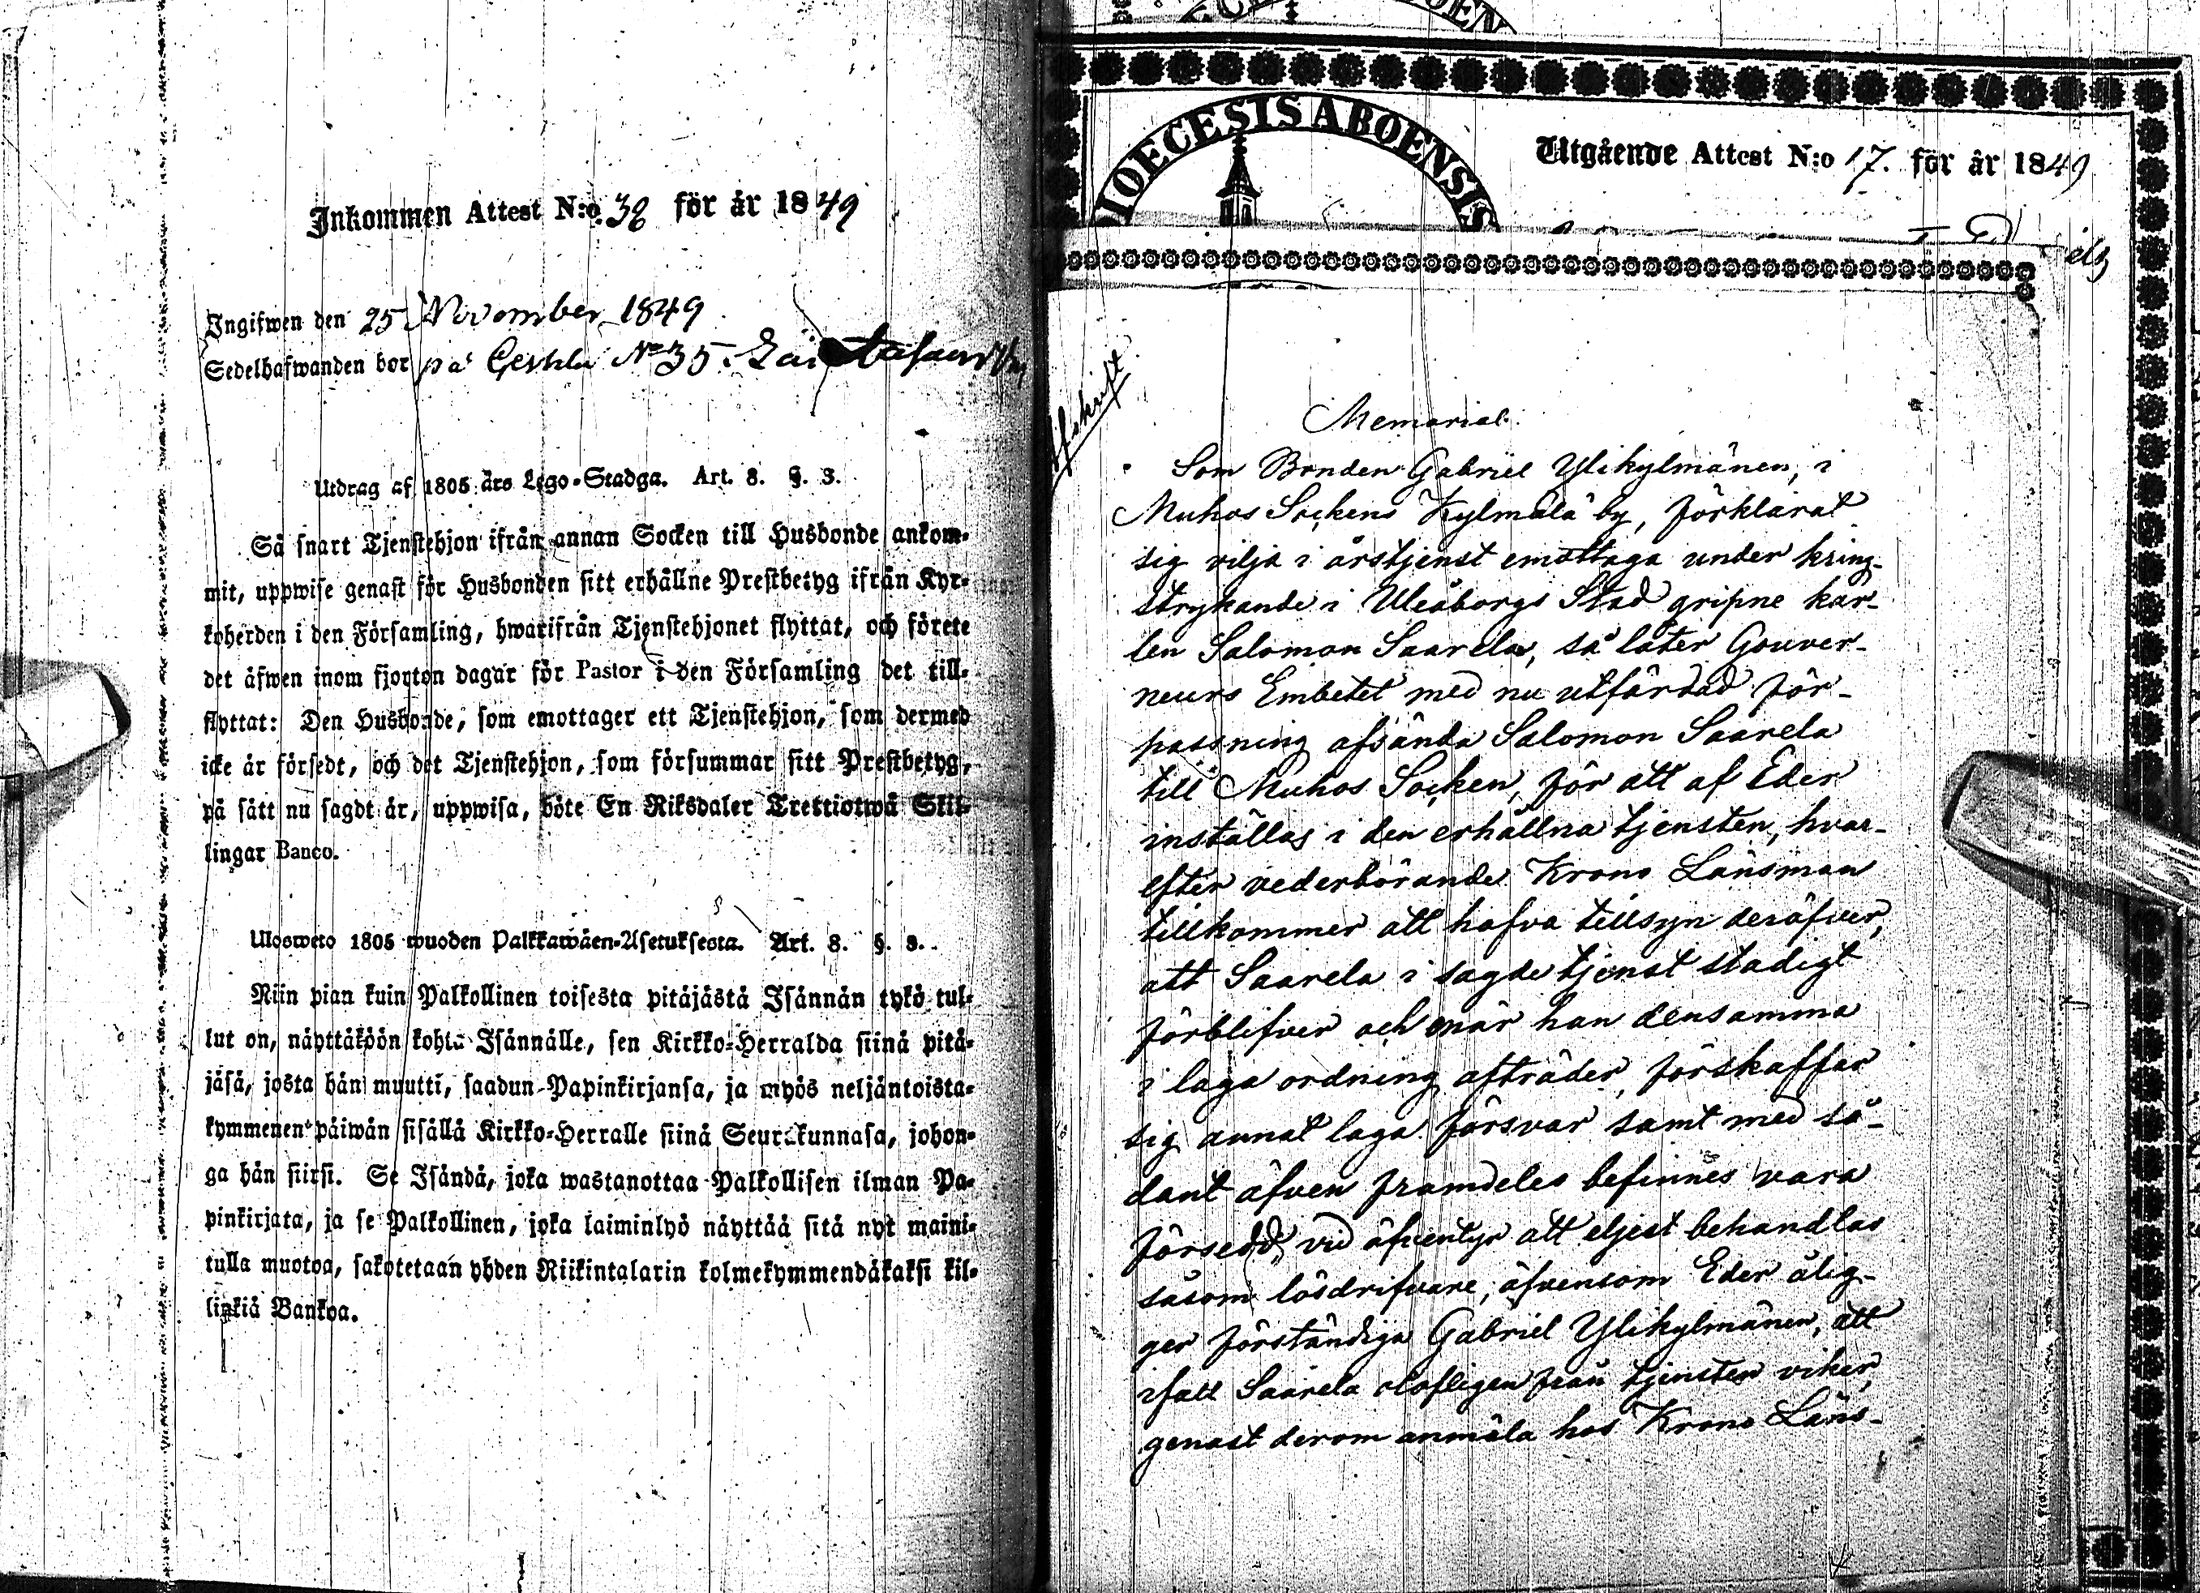 Inkommen Attest N:o 38 för år 1849
Ingifwen den 25 November 1849
Sedelhafwanden bor på N:o 35.
Utdrag af 1805 års Lego-Stadga. Art. 8. §. 3.
Så snart Tjenstehjon ifrån annan Socken till Husbonde ankom-
mit, uppwise genast för Husbonden sitt erhållne Prestbetyg ifrån Kyr-
koherden i den Församling, hwarifrån Tjenstehjonet flyttat, och förete
det äfwen inom fjorton dagar för Pastor i den Församling det till-
flyttat: Den Husbonde, som emottager ett Tjenstehjon, som dermed
icke är försedt, och det Tjenstehjon, som försummar sitt Prestbetyg,
på sätt nu sagdt är, uppwisa, böte En Riksdaler Trettiotwå Skil-
lingar Banco.
Ulosweto 1805 wuoden Palkkawäen-Asetuksesta. Art. 8. §. 3.
Niin pian kuin Palkollinen toisesta pitäjästä Isännän tykö tul-
lut on, näyttäköön kohta Isännälle, sen Kirkko-Herralda siinä pitä-
jäsä, josta hän muutti, saadun Papinkirjansa, ja myös neljäntoista-
kymmenen päiwän sisällä Kirkko-Herralle siinä Seurakunnasa, johon-
ga hän siirsi. Se Isändä, joka wastanottaa Palkollisen ilman Pa-
pinkirjata, ja se Palkollinen, joka laiminlyö näyttää sitä nyt maini-
tulla muotoa, sakotetaan yhden Riikintalarin kolmekymmendäkaksi kil-
linkiä Bankoa.
DIOECESIS ABOENSIS
Utgående Attest N:o 17. för år 1849
Afskrift
Memorial.
Som Bonden Gabriel Ylikylmänen, i
Muhos Sockens Kylmälä by, förklarat
sig vilja i årstjenst emottaga under kring-
strykande i Uleåborgs Stad gripne kar-
len Salomon Saarela, så låter Gouver-
neurs Embetet med nu utfärdad för-
passning afsända Salomon Saarela
till Muhos Socken, för att af Eder
inställas i den erhållna tjensten, hvar-
efter vederbörande Krono Länsman
tillkommer att hafva tillsyn deröfver,
att Saarela i sagde tjenst stadigt
förblifver och när han densamma
i laga ordning afträder, förskaffar
sig annat laga försvar samt med så-
dant äfven framdeles befinnes vara
försedd, vid äfventyr att eljest behandlas
såsom lösdrifvare, äfvensom Eder ålig-
ger förständiga Gabriel Ylikylmänen, att
ifall Saarela olofligen från tjensten viker,
genast derom anmäla hos Krono Läns-